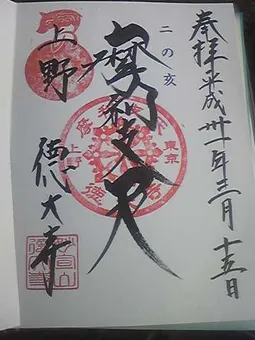 奉拝 平成卅一年三月十五日
二の亥
摩利支天
東京
上野
上野
徳大寺